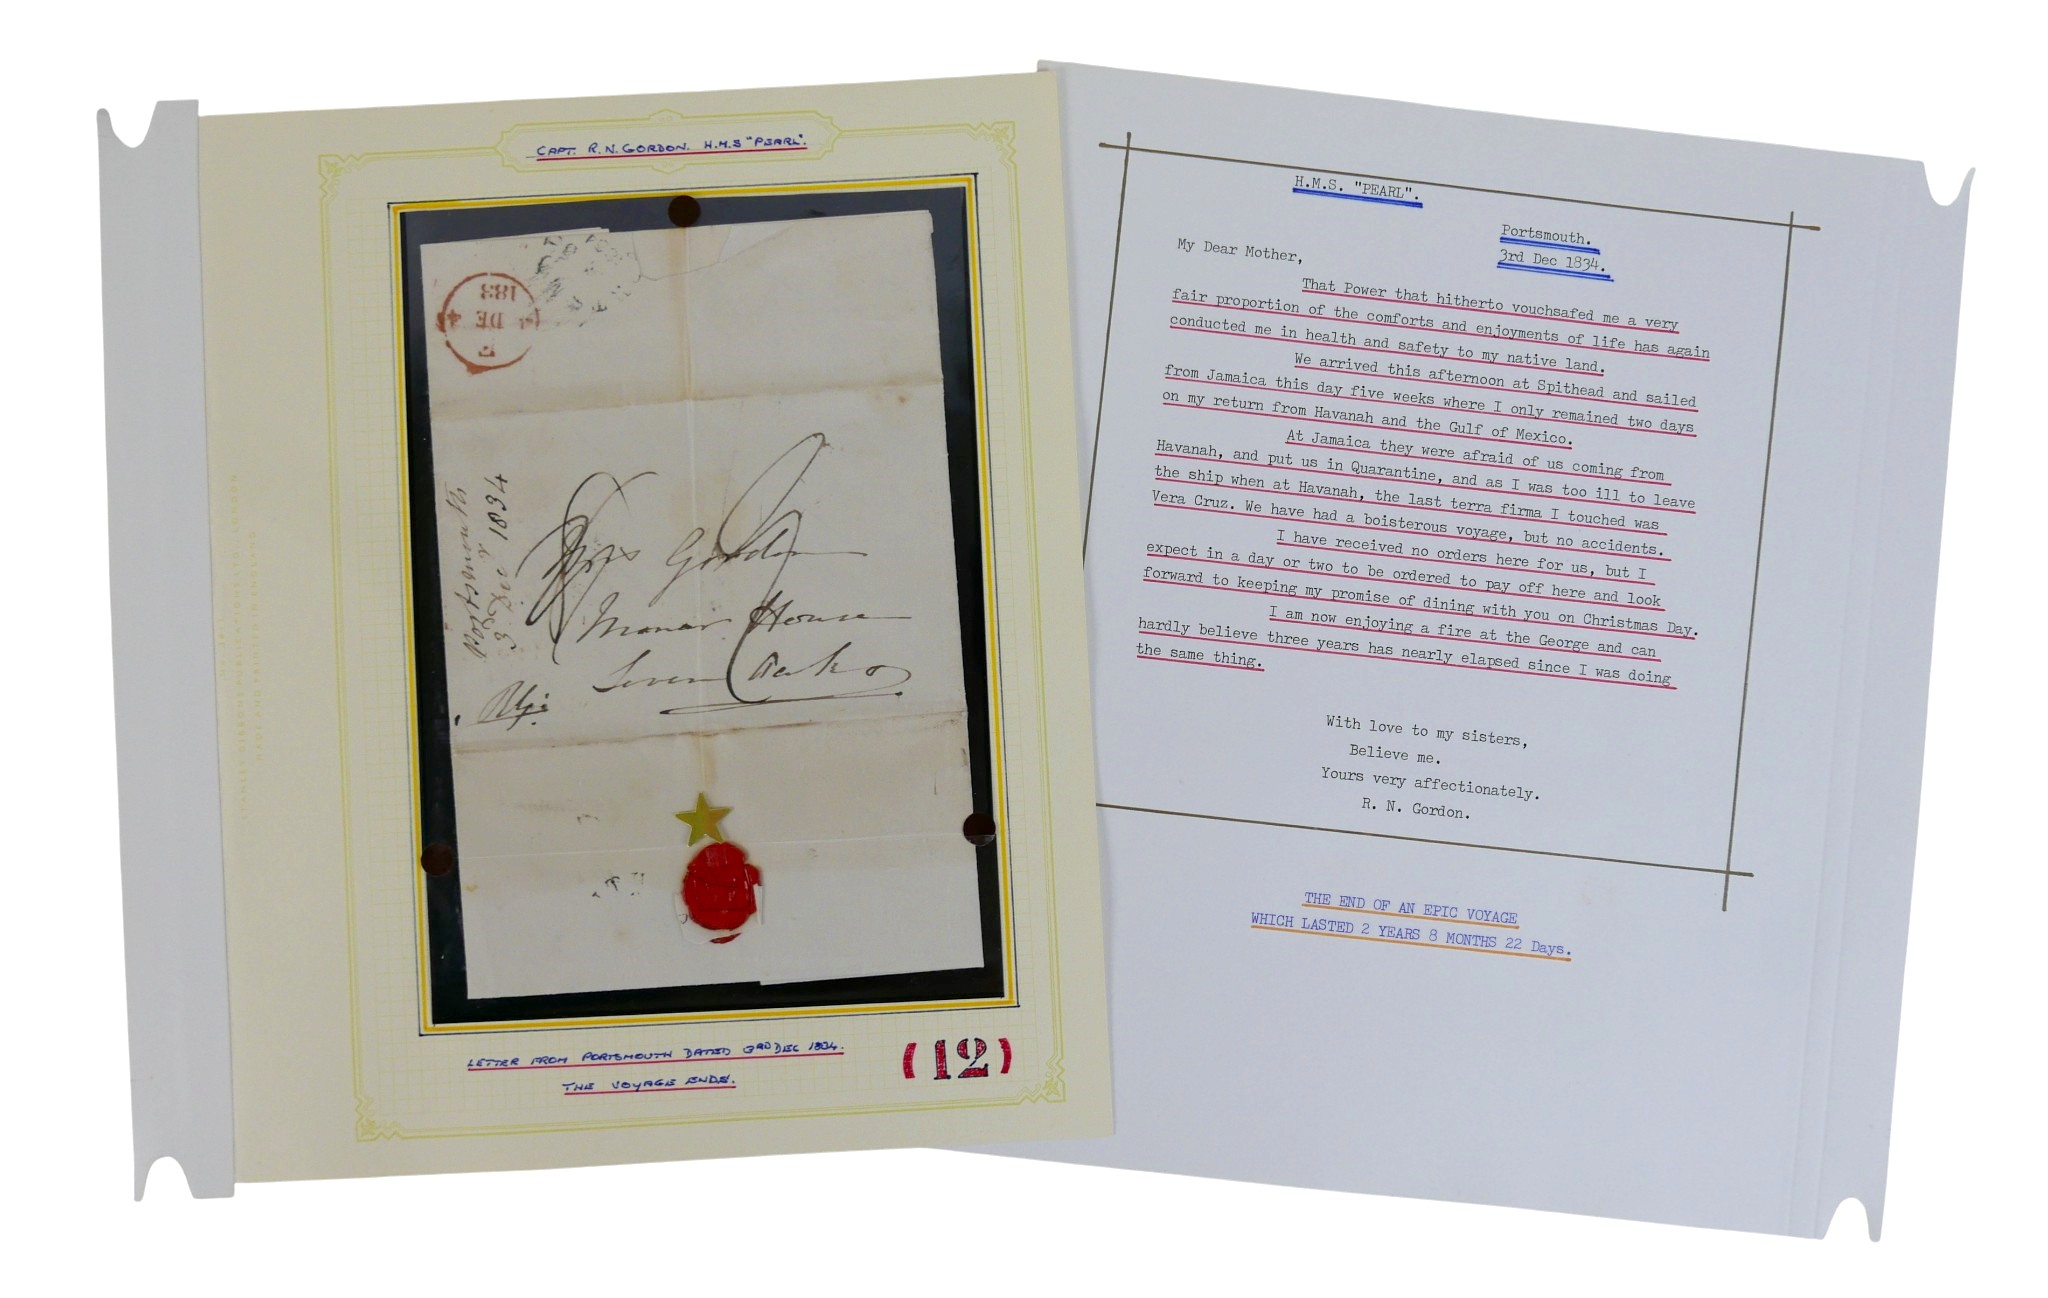 CAPT. R.N. GORDON. H.M.S "PEARL".
183
DE
Portsmouth
3 Dec 1834
Mrs Gordon
Manor House
Seven Oaks
LETTER FROM PORTSMOUTH DATED 3RD DEC 1834.
THE VOYAGE ENDS.
(12)
H.M.S. "PEARL".
Portsmouth.
3rd Dec 1834.
My Dear Mother,
That Power that hitherto vouchsafed me a very
fair proportion of the comforts and enjoyments of life has again
conducted me in health and safety to my native land.
We arrived this afternoon at Spithead and sailed
from Jamaica this day five weeks where I only remained two days
on my return from Havanah and the Gulf of Mexico.
At Jamaica they were afraid of us coming from
Havanah, and put us in Quarantine, and as I was too ill to leave
the ship when at Havanah, the last terra firma I touched was
Vera Cruz. We have had a boisterous voyage, but no accidents.
I have received no orders here for us, but I
expect in a day or two to be ordered to pay off here and look
forward to keeping my promise of dining with you on Christmas Day.
I am now enjoying a fire at the George and can
hardly believe three years has nearly elapsed since I was doing
the same thing.
With love to my sisters,
Believe me.
Yours very affectionately.
R. N. Gordon.
THE END OF AN EPIC VOYAGE
WHICH LASTED 2 YEARS 8 MONTHS 22 Days.